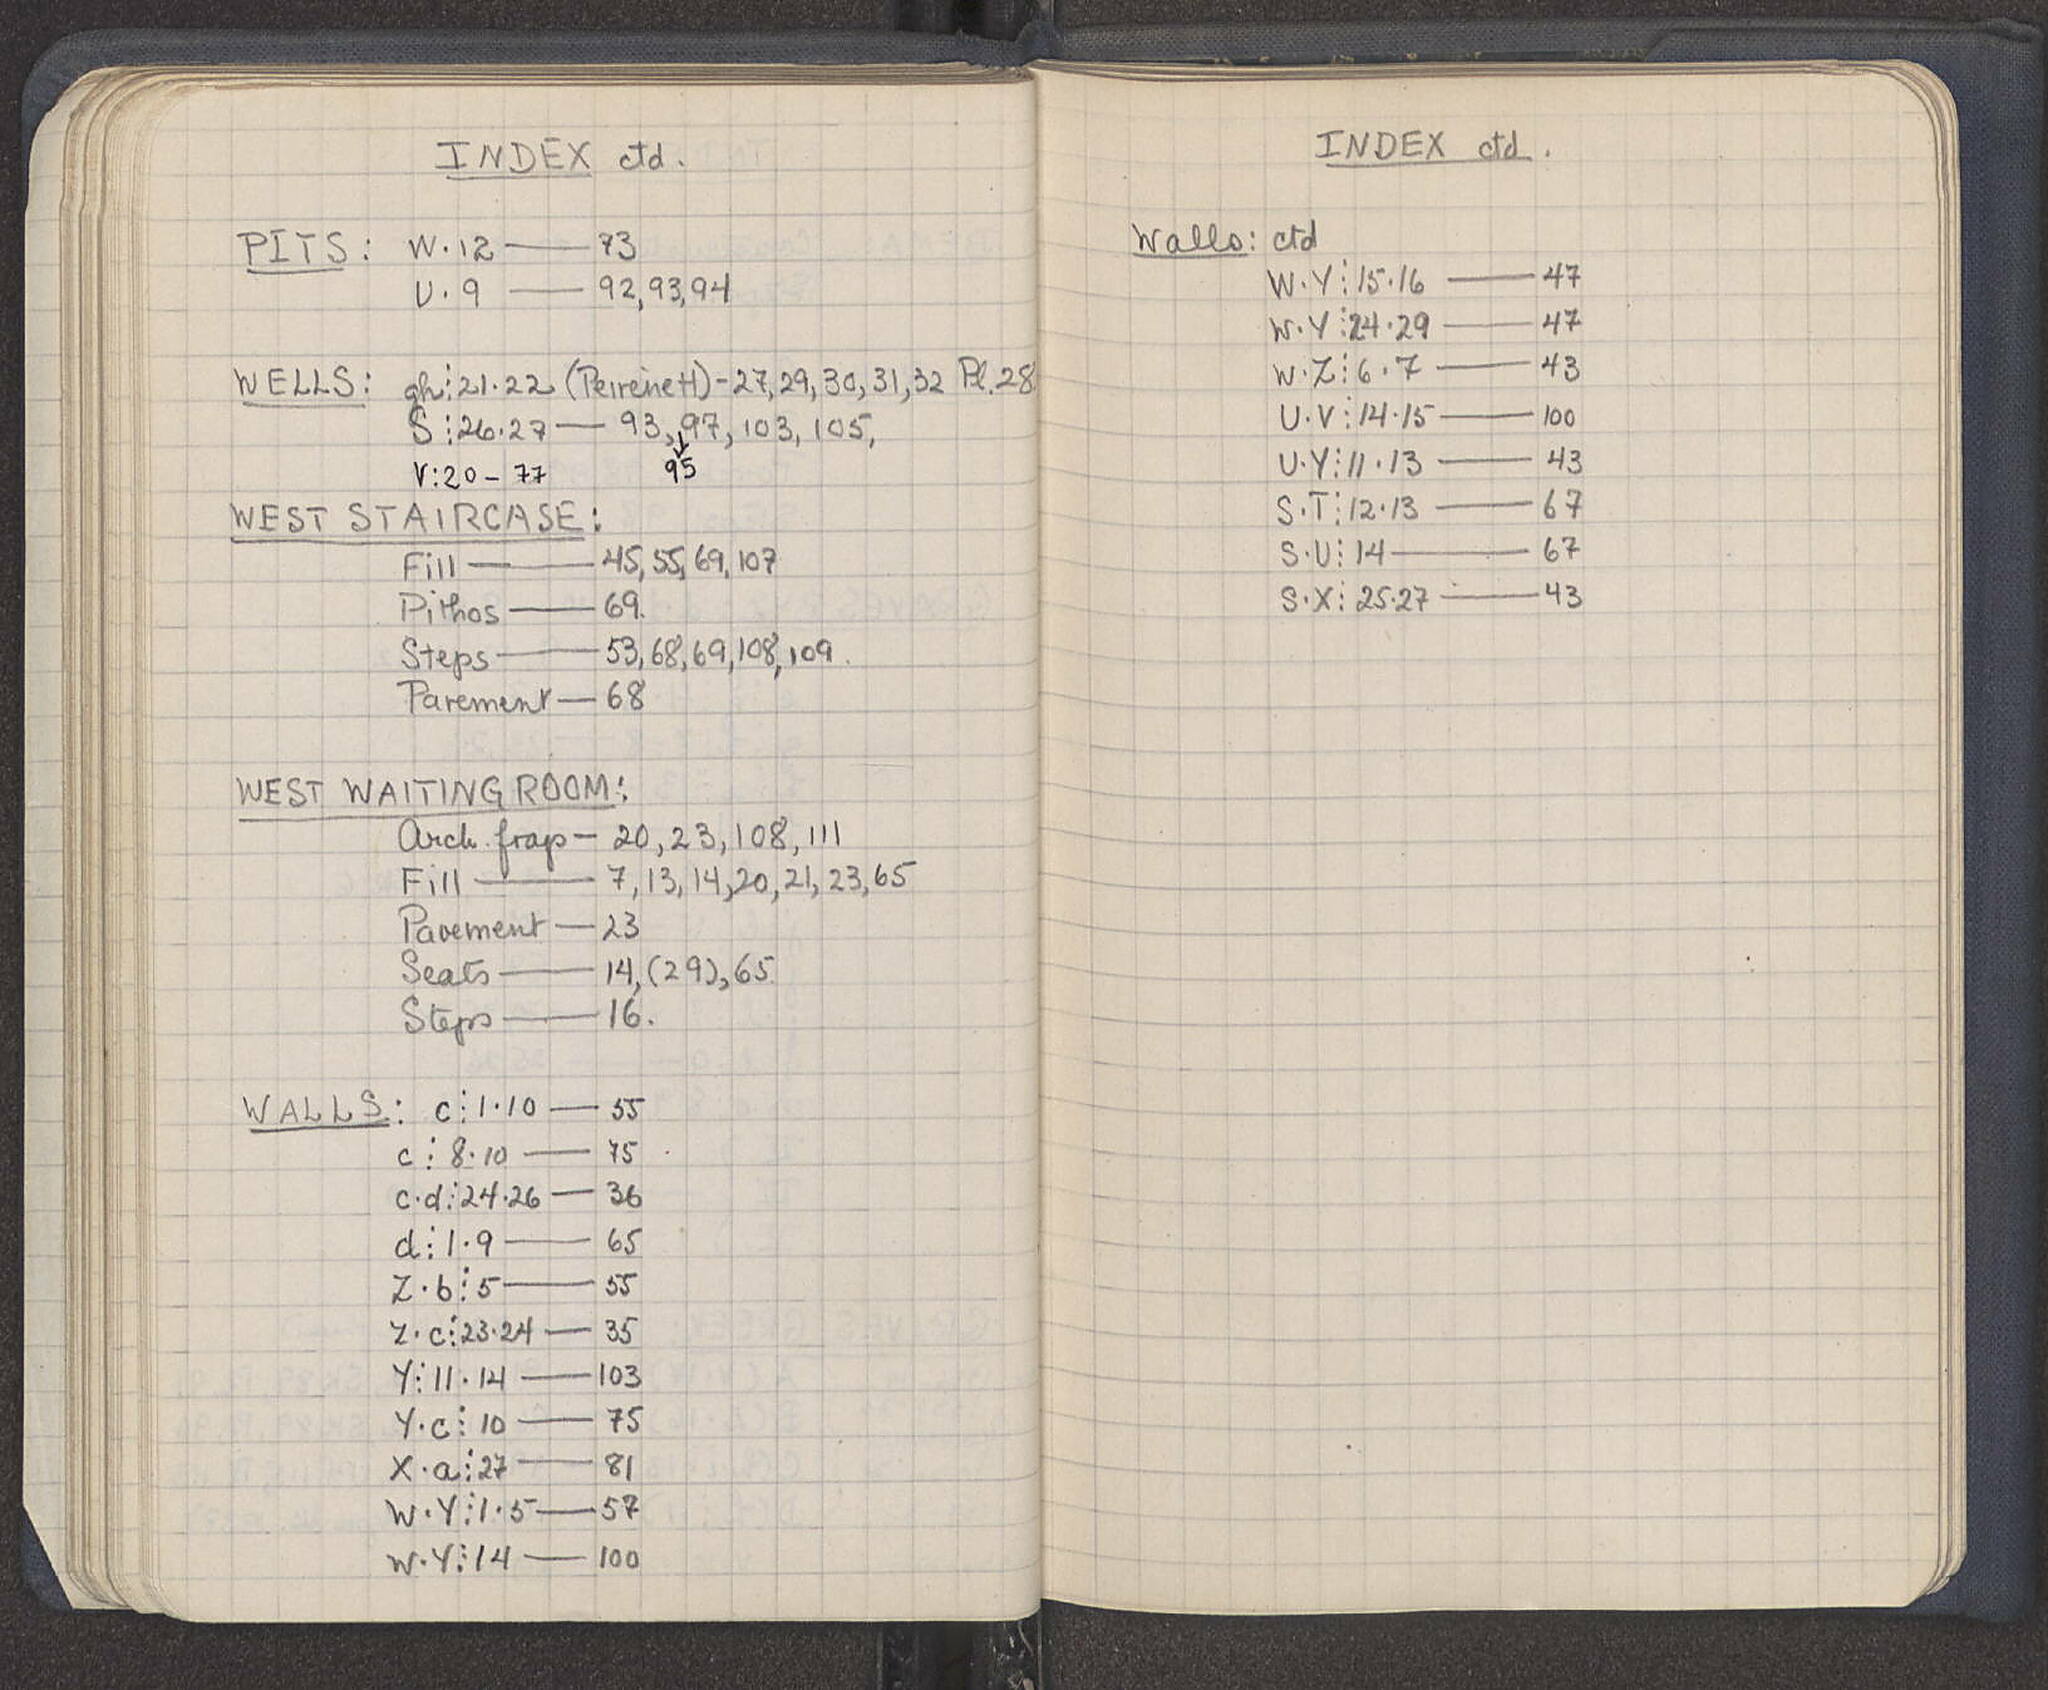 INDEX ctd.
PITS: W·12 — 73
U·9 — 92, 93, 94
WELLS: gh:21·22 (Peirene H) - 27, 29, 30, 31, 32 Pl. 28
S:26·27 — 93, 97, 103, 105,
V:20 - 77 95
WEST STAIRCASE:
Fill — 45, 55, 69, 107
Pithos — 69.
Steps — 53, 68, 69, 108, 109.
Pavement — 68
WEST WAITING ROOM:
Arch. frags — 20, 23, 108, 111
Fill — 7, 13, 14, 20, 21, 23, 65
Pavement — 23
Seats — 14, (29), 65.
Steps — 16.
WALLS: c:1·10 — 55
c:8·10 — 75
c·d:24·26 — 36
d:1·9 — 65
Z·b:5 — 55
Z·c:23·24 — 35
Y:11·14 — 103
Y·c:10 — 75
X·a:27 — 81
W·Y:1·5 — 57
W·Y:14 — 100
INDEX ctd.
Walls: ctd
W·Y:15·16 — 47
W·Y:24·29 — 47
W·Z:6·7 — 43
U·V:14·15 — 100
U·Y:11·13 — 43
S·T:12·13 — 67
S·U:14 — 67
S·X:25·27 — 43